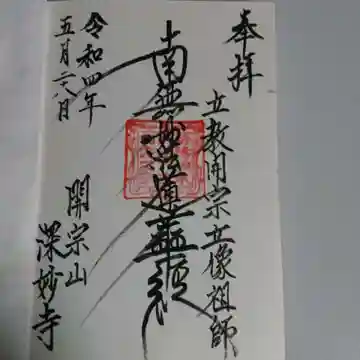 奉拝
立教開宗立像祖師
南無妙法蓮華経
開宗山
深妙寺
令和四年
五月二八日